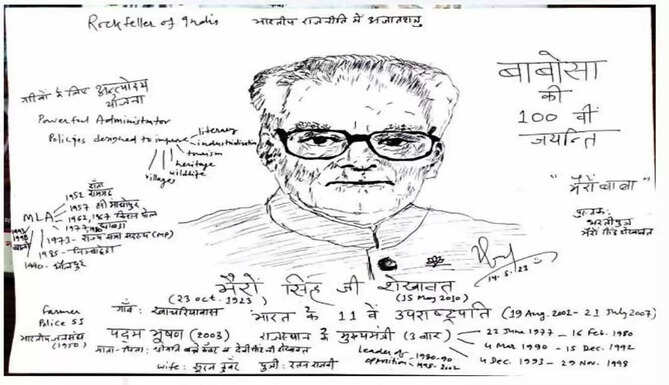 Rockfeller of India
भारतीय राजनीति में अजातशत्रु
बाबोसा
की
100 वीं
जयन्ति
"भैरों बाबा"
गरीबों के लिए अन्त्योदय
योजना
Powerful Administrator
Policies designed to improve
literacy
industrialization
tourism
heritage
wildlife
villages
MLA
1952
1957
1962, 1967
1977
1973 - राज्य सभा सदस्य (MP)
1985 -
1990 - धौलपुर
14.5.23
भैरों सिंह जी शेखावत
(23 oct. 1923)
(15 May 2010)
Farmer
Police SI
गाँव: खाचरियावास
भारत के 11 वें उपराष्ट्रपति (19 Aug. 2002 - 21 July 2007)
भारतीय जनसंघ
(1950)
पद्म भूषण (2003)
राजस्थान के मुख्यमंत्री (3 बार)
22 June 1977 - 16 Feb. 1980
4 Mar 1990 - 15 Dec. 1992
4 Dec. 1993 - 29 Nov. 1998
माता-पिता:
Leader of opposition
1980-90
1998-2002
wife: सूरज कँवर
पुत्री: रतन राजवी